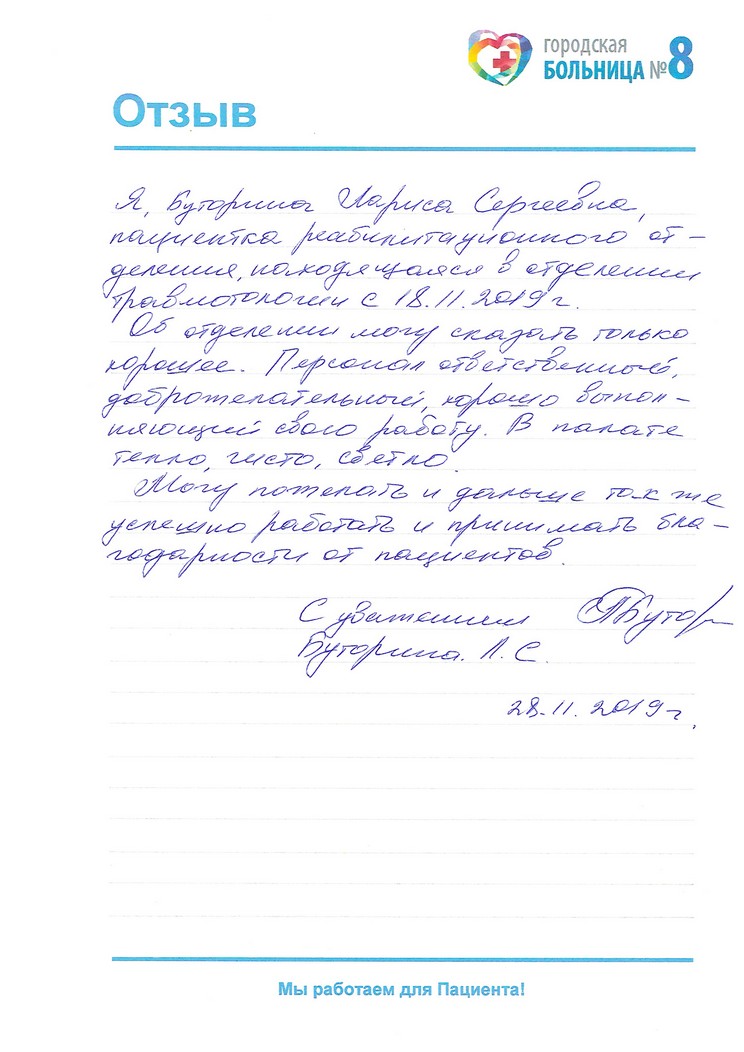 городская
БОЛЬНИЦА №8
Отзыв
Я, Буторина Лариса Сергеевна,
пациентка реабилитационного от-
деления, находящаяся в отделении
травмотологии с 18.11.2019г.
Об отделении могу сказать только
хорошее. Персонал ответственный,
доброжелательный, хорошо выпол-
няющий свою работу. В палате
тепло, чисто, светло.
Могу пожелать и дальше так же
успешно работать и принимать бла-
годарности от пациентов.
С уважением Бутор
Буторина. Л. С.
28.11.2019г.
Мы работаем для Пациента!